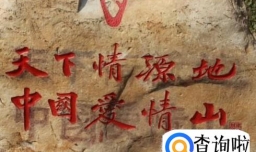 天下情源地
中國愛情山
查询啦